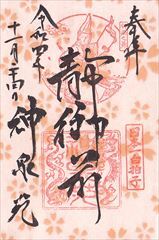 奉拝
静御前
日本一白拍子
神泉苑
令和四年
十一月二十四日